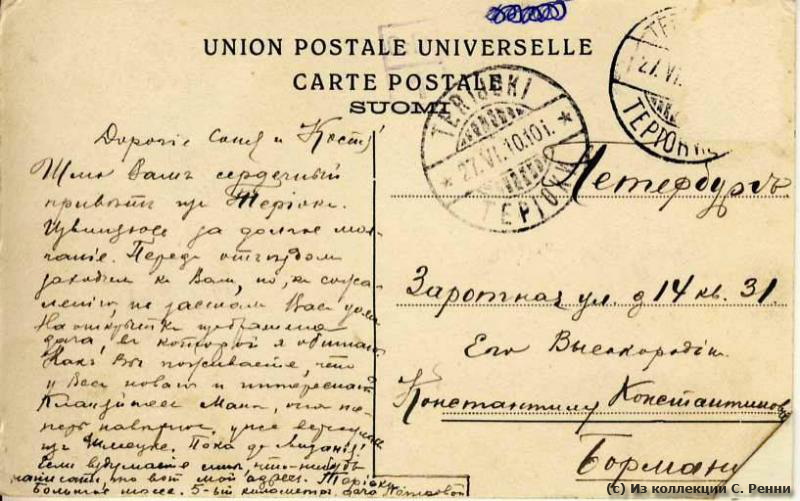 UNION POSTALE UNIVERSELLE
CARTE POSTALE
SUOMI
TERIJOKI
27.VI.10.10 i.
ТЕРІОКИ
27.VI.
ТЕРІОКИ
Дорогіе Соня и Костя!
Шлю Вамъ сердечный
привѣтъ изъ Теріокъ.
за долгое мол-
чаніе. Передъ отъѣздомъ
заходили къ Вамъ, но, къ сожа-
ленію, не застали Васъ дома
На открыткѣ изображена
дача, въ которой я обитаю
Какъ Вы поживаете, что
у Васъ новаго и интереснаго
те-
перь навѣрное, уже вернулась
изъ Пока до свиданія!
Если вздумаете мнѣ что-нибудь
написать, то вотъ мой адресъ. Теріоки
Большое шоссе. 5-ый километръ, дача
Петербургъ
ул. д 14 кв. 31.
Его Высокородію
Константину Константиновичу
Борману
(c) Из коллекции С. Ренни